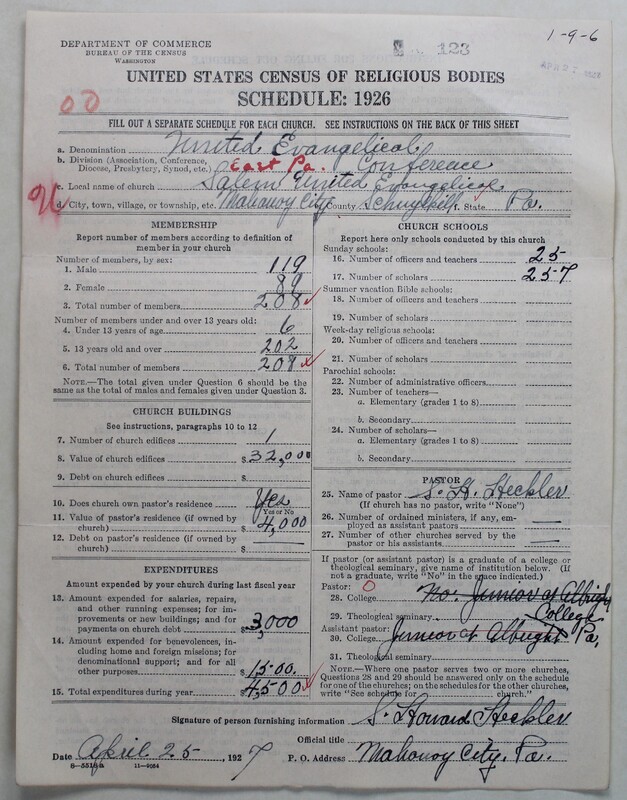 1-9-6
DEPARTMENT OF COMMERCE
BUREAU OF THE CENSUS
WASHINGTON
123
UNITED STATES CENSUS OF RELIGIOUS BODIES
SCHEDULE: 1926
FILL OUT A SEPARATE SCHEDULE FOR EACH CHURCH. SEE INSTRUCTIONS ON THE BACK OF THIS SHEET
a. Denomination United Evangelical
b. Division (Association, Conference, Diocese, Presbytery, Synod, etc.) East Pa. Conference
c. Local name of church Salem United Evangelical
d. City, town, village, or township, etc. Mahanoy City County Schuylkill f. State Pa.
MEMBERSHIP
Report number of members according to definition of member in your church
Number of members, by sex:
1. Male 119
2. Female 89
3. Total number of members 208
Number of members under and over 13 years old:
4. Under 13 years of age 6
5. 13 years old and over 202
6. Total number of members 208
NOTE.—The total given under Question 6 should be the same as the total of males and females given under Question 3.
CHURCH BUILDINGS
See instructions, paragraphs 10 to 12
7. Number of church edifices 1
8. Value of church edifices $32,000
9. Debt on church edifices $
10. Does church own pastor's residence Yes
Yes or No
11. Value of pastor's residence (if owned by church) $4,000
12. Debt on pastor's residence (if owned by church) $ —
EXPENDITURES
Amount expended by your church during last fiscal year
13. Amount expended for salaries, repairs, and other running expenses; for improvements or new buildings; and for payments on church debt $3,000
14. Amount expended for benevolences, including home and foreign missions; for denominational support; and for all other purposes $1500.
15. Total expenditures during year $4,500
CHURCH SCHOOLS
Report here only schools conducted by this church
Sunday schools:
16. Number of officers and teachers 25
17. Number of scholars 257
Summer vacation Bible schools:
18. Number of officers and teachers
19. Number of scholars
Week-day religious schools:
20. Number of officers and teachers
21. Number of scholars
Parochial schools:
22. Number of administrative officers
23. Number of teachers—
a. Elementary (grades 1 to 8)
b. Secondary
24. Number of scholars—
a. Elementary (grades 1 to 8)
b. Secondary
PASTOR
25. Name of pastor S. H. Heckler
(If church has no pastor, write "None")
26. Number of ordained ministers, if any, employed as assistant pastors —
27. Number of other churches served by the pastor or his assistants —
If pastor (or assistant pastor) is a graduate of a college or theological seminary, give name of institution below. (If not a graduate, write "No" in the space indicated.)
Pastor: O
28. College No. Junior at Albright
29. Theological seminary College
Assistant pastor: Pa.
30. College Junior at Albright
31. Theological seminary
NOTE.—Where one pastor serves two or more churches, Questions 28 and 29 should be answered only on the schedule for one of the churches; on the schedules for the other churches, write "See schedule for ____ church."
Signature of person furnishing information S. Howard Heckler
Official title
Date April 25, 1927 P. O. Address Mahanoy City, Pa.
8-5518a 11-9084